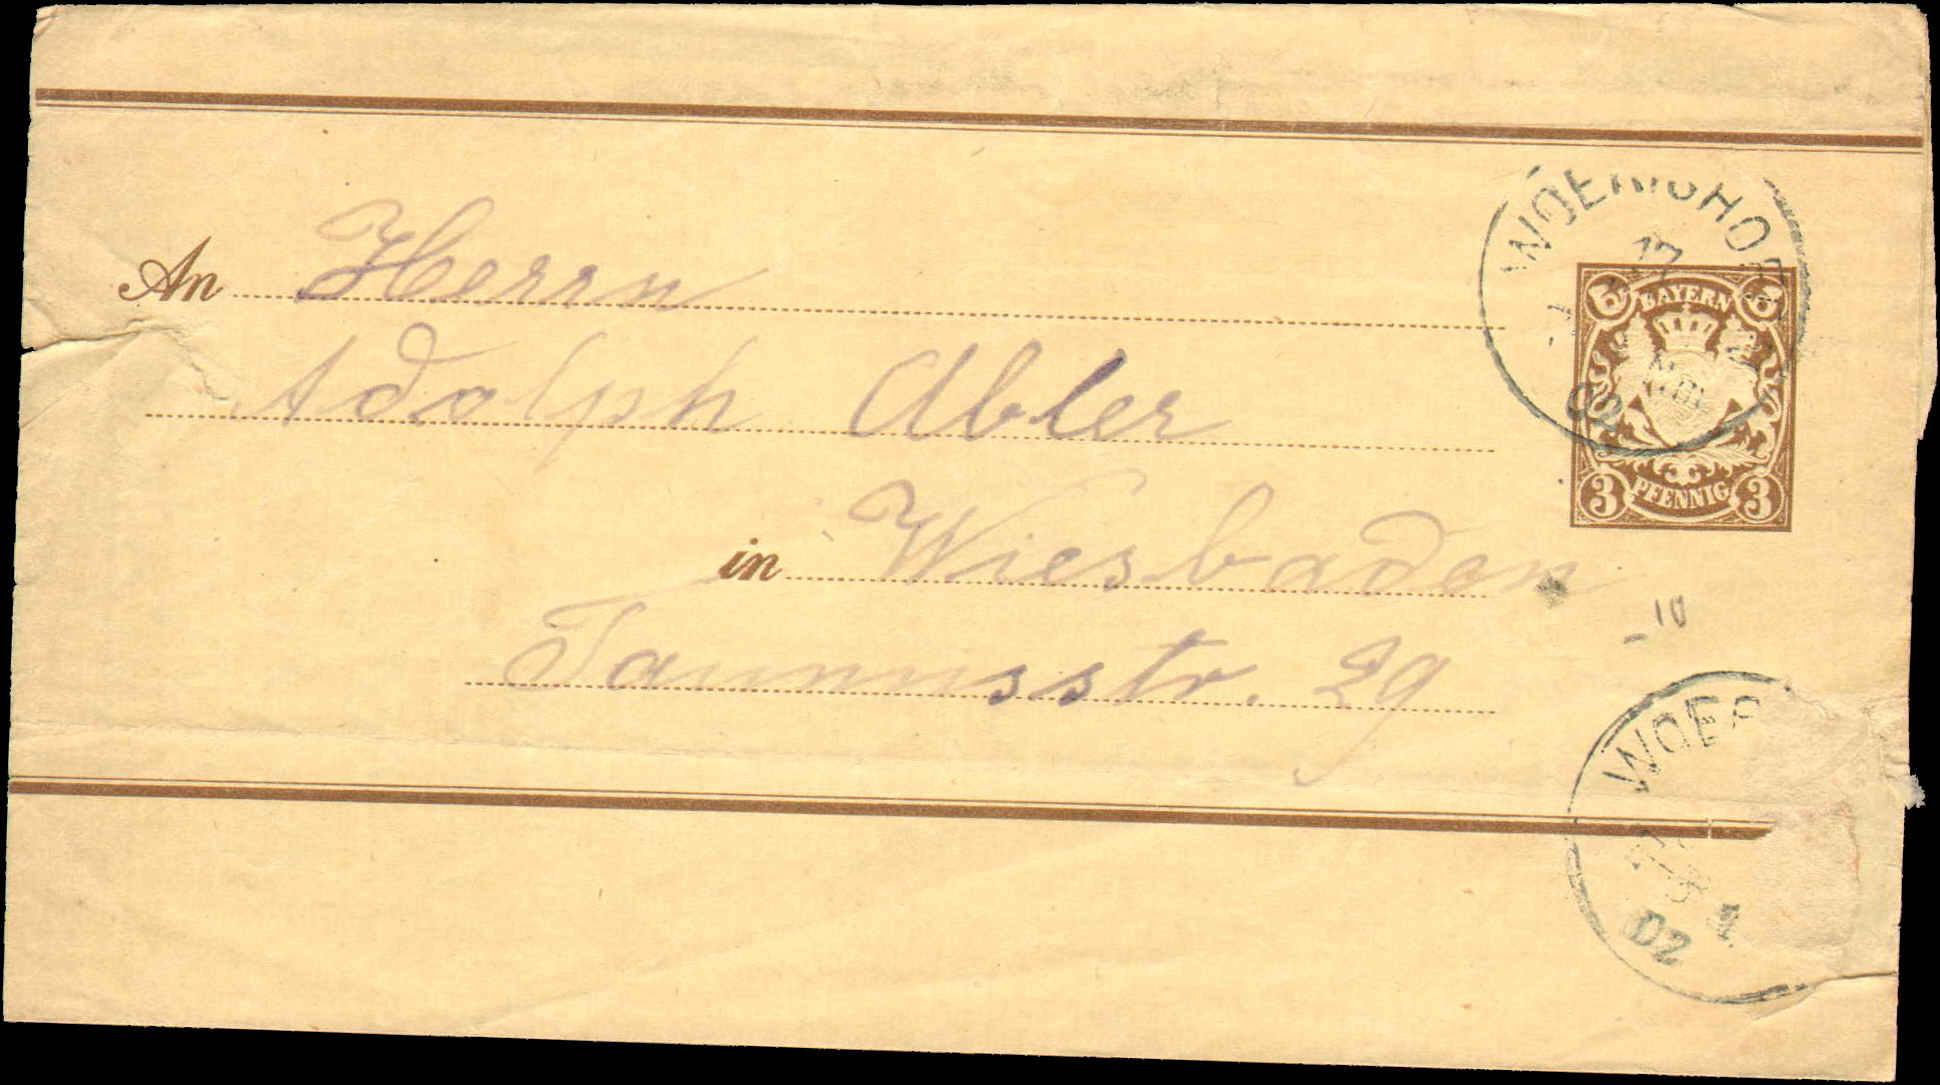 WOERISHOF
17
BAYERN
02
3 PFENNIG 3
An Herrn
Adolph Abler
in Wiesbaden
Taunusstr. 29
WOER
02